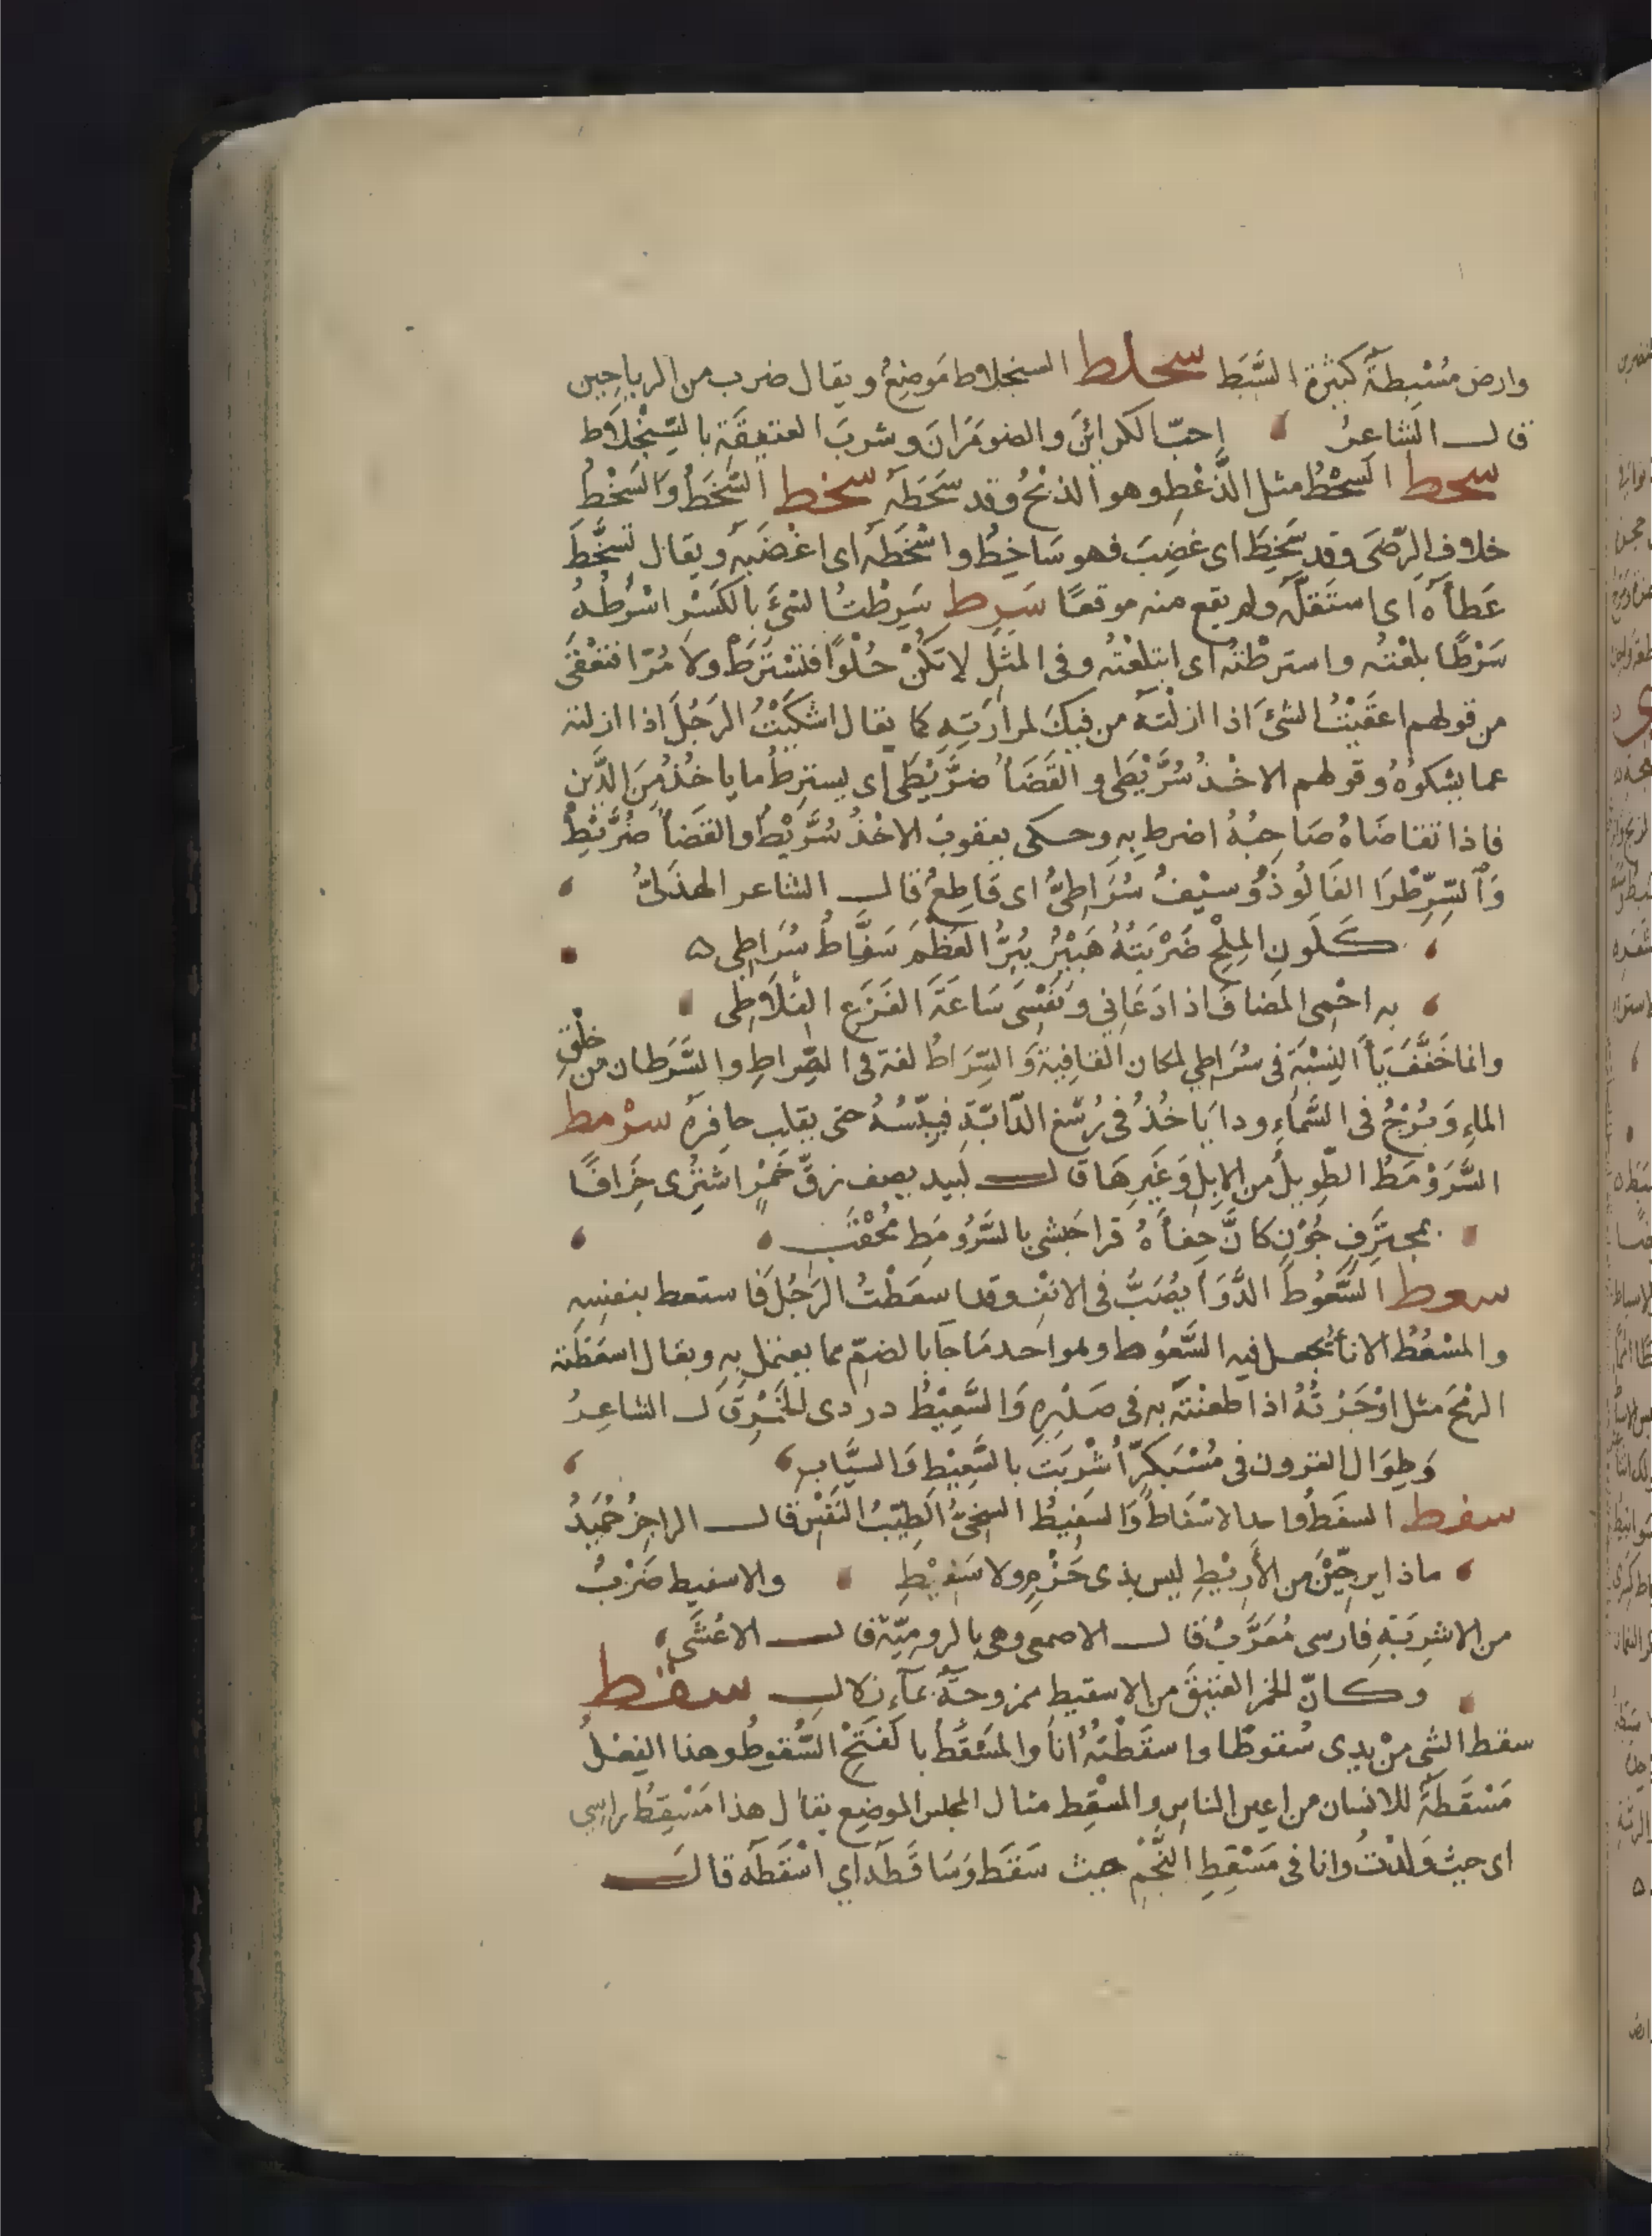 وارض مُسْبِطَةٌ كثيرة السَّبَط سجلط السنجلاط مَوضِعٌ ويقال ضرب من الرياحين
قال الشاعرُ احبّ الكرائنَ والضومَرَانَ وشربَ العتيقَةِ بالسِّنْجِلاط
سحط السَّحْطُ مثل الذَّعْطِ وهو الذبْحُ وقد سَحَطَهُ سخط السَّخَطُ والسُّخْطُ
خلاف الرِّضَى وقد سَخِطَ اى غضِبَ فهو سَاخِطٌ واسْخَطَهُ اى اغْضَبَهُ ويقال تسَخَّطَ
عَطَأهُ اى استَقَلَّهُ ولم يقع منه موقعًا سَرِط سَرِطْتُ الشىَّ بالكَسْرِ اسْرَطُهُ
سَرْطًا بلعْتُه واسترطْتُه اى ابتلعْتُه وفى المثلِ لا تكُنْ حُلْوًا فتُسْتَرَطَ ولا مُرًّا فتُعْقَى
من قولهم اعقَيْتُ الشىَ اذا ازلْتَهُ من فيكَ لمرارَتِهِ كما يقال اشكَيْتُ الرجُلَ اذا ازلته
عما يشكوُهُ وقولهم الاخْذُ سُرَّيْطَى والقَضَأُ ضُرَّيْطَى اى يسترِطُ ما ياخُذُ مِنَ الدَّين
فاذا تقاضَاهُ صَاحِبُهُ اضرط بِهِ وحكى يعقوبُ الاخْذُ سُرَّيْطٌ والقضَأُ ضُرَّيْطٌ
وَالسِّرِطْرَاطُ الفَالُوذَوُ وسيْفٌ سُرَاطِىٌّ اى قاطِعٌ قال الشاعر الهذلىُّ
كَلَونِ المِلْحِ ضَرْبَتُهُ هَبِيْرٌ يُتِرُّ العَظْمَ سَقَّاطٌ سُرَاطِى
به احْمِى المضافَ اذا دَعَانِي ونَفْسِى سَاعَةَ الفَزَعِ الفِلَاطِى
وانما خَفَّفَ يَأَ النِسْبَةِ فى سُرَاطِي لمكان القافِيةِ وَالسِّرَاطُ لغة فى الصِّراطِ والسَّرَطان من خلْقِ
الماءِ وَبُرْجٌ فى السَّماءِ ودا يَاخُذُ فى رُسْغِ الدَّابَّةِ فيُيَبِّسُهُ حتى يقلب حافِرَهُ سرْمط
السَّرَوْمَطُ الطَّوِيلُ من الابِلِ وَغَيرِهَا قال لَبيد يصف زِقَّ خَمْرٍ اشتُرِى جِزَافًا
بمجتَزَفٍ جُوْنٍ كانَّ خِفأهُ قرا حَبَشي بالسَّرَوْمَطِ مُحْقَبِ
سعط السَّعُوطُ الدَّوَأ يُصَبُّ فى الانْفِ وقد اسعَطْتُ الرجُلَ فاستعط بنفسِهِ
والمُسْعُطُ الانأُ يُجعل فيه السَّعُوط وهو احد مَا جَأ بالضمّ مما يعتمل بِهِ ويقال اسعَطْته
الرمْحَ مثل اوْجَرْتُهُ اذا طعنْتَه به فى صَدْرِهِ وَالسَّعِيْطُ دردى الخَمْرِ قال الشاعِرُ
وَطِوَال القرون فى مُسْبَكِرٍّ اُشْرِبَتْ بالسَّعِيْطِ وَالسَّيَّابِ
سفط السفَطُ واحد الاسْفَاطُ وَالسَفِيْطُ السخِىُّ الطَيِّبُ النَفْسِ قال الراجِزُ حُمَيْدٌ
ماذا يرجِّيْنَ من الأرِيْطِ ليس بذى حَزْمٍ ولا سَفِيْطِ والاسفيط ضَرْبٌ
من الاشرِبَةِ فارسى مُعَرَّبٌ قال الاصمعى وهى بالروميّة قال الاعْشَى
وكانّ الخمر العتيْقَ من الاسفيط ممزوجَةٌ بمآءٍ زلال سقط
سقط الشى مِنْ يدى سُقوطًا واسقَطْتُهُ أنَا والمَسْقَطُ بالفَتْحِ السُّقوطُ وهذا الفِعْلُ
مَسْقَطَةٌ للانسان من اعين الناسِ والمسْقِط مثال المجلس الموضع يقال هذا مَسْقِطُ راسي
اى حيث وَلَدْتُ وانا فى مَسْقِطِ النَّجْمِ حيث سَقَطَ وَسَاقَطَهُ اي اسْقَطَهُ قال